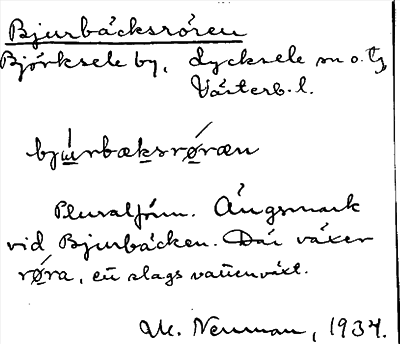 Bjurbäcksrören
Björksele by, Lycksele sn o. tg,
Västerb. l.
bjúrbæksrǿræn
Pluralform. Ängsmark
vid Bjurbäcken. Där växer
røra, en slags vattenväxt.
M. Nenman, 1937.